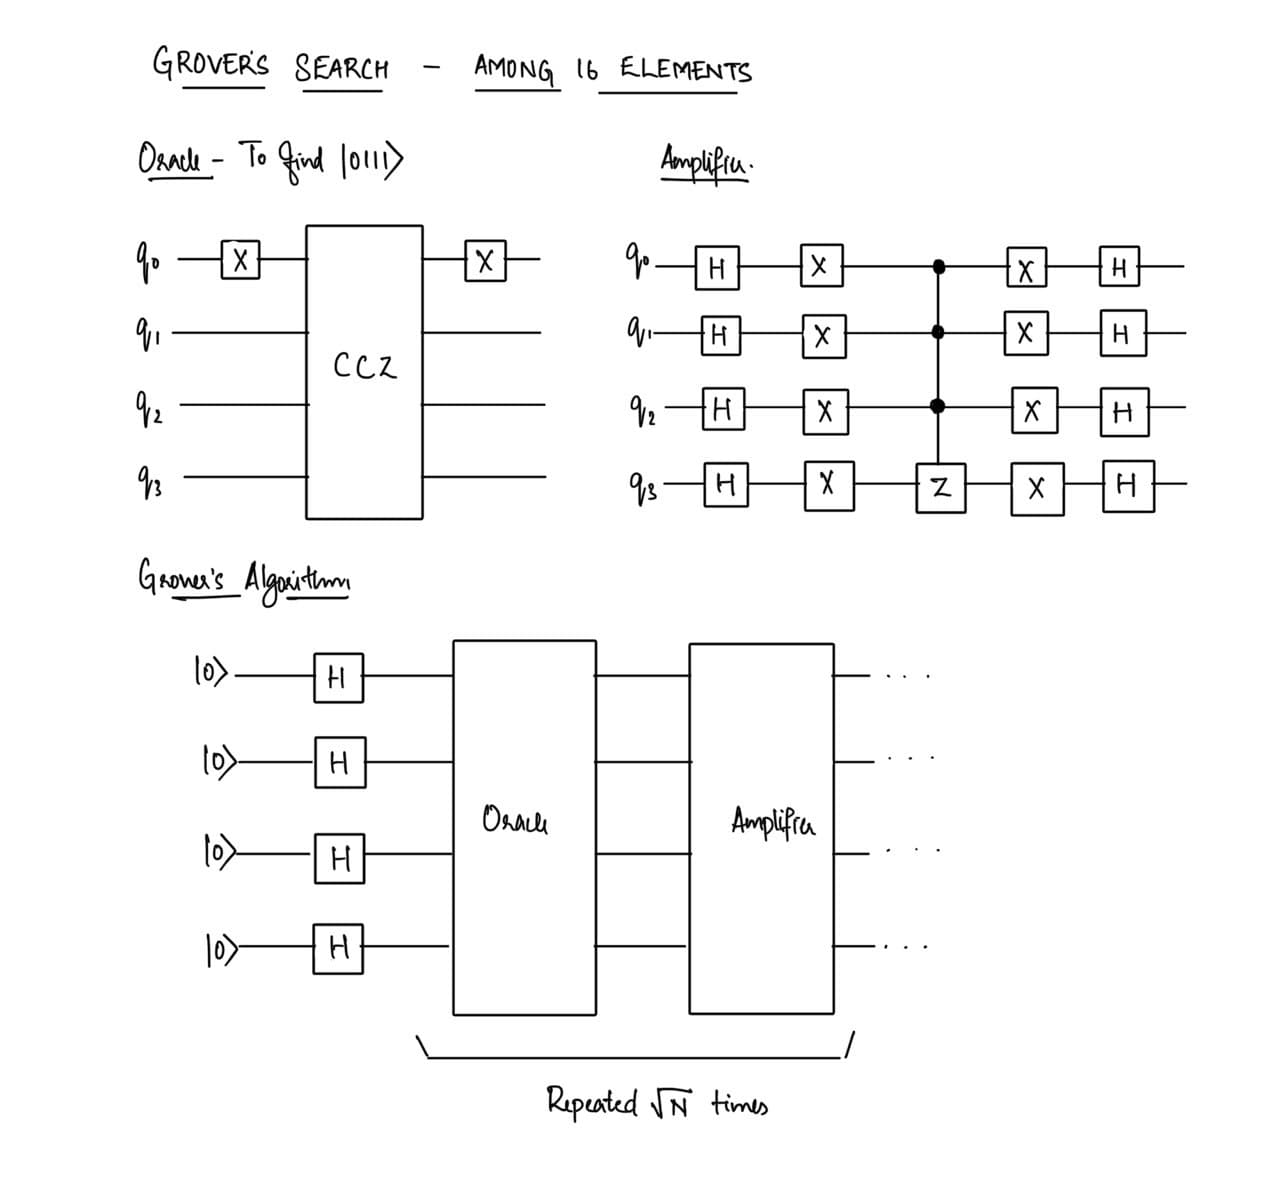 GROVER'S SEARCH - AMONG 16 ELEMENTS
Oracle - To find |0111⟩
Amplifier.
q0 X CCZ X
q1
q2
q3
q0 H X X H
q1 H X X H
q2 H X X H
q3 H X Z X H
Grover's Algorithm
|0⟩ H ...
|0⟩ H ...
Oracle Amplifier
|0⟩ H ...
|0⟩ H ...
Repeated √N times